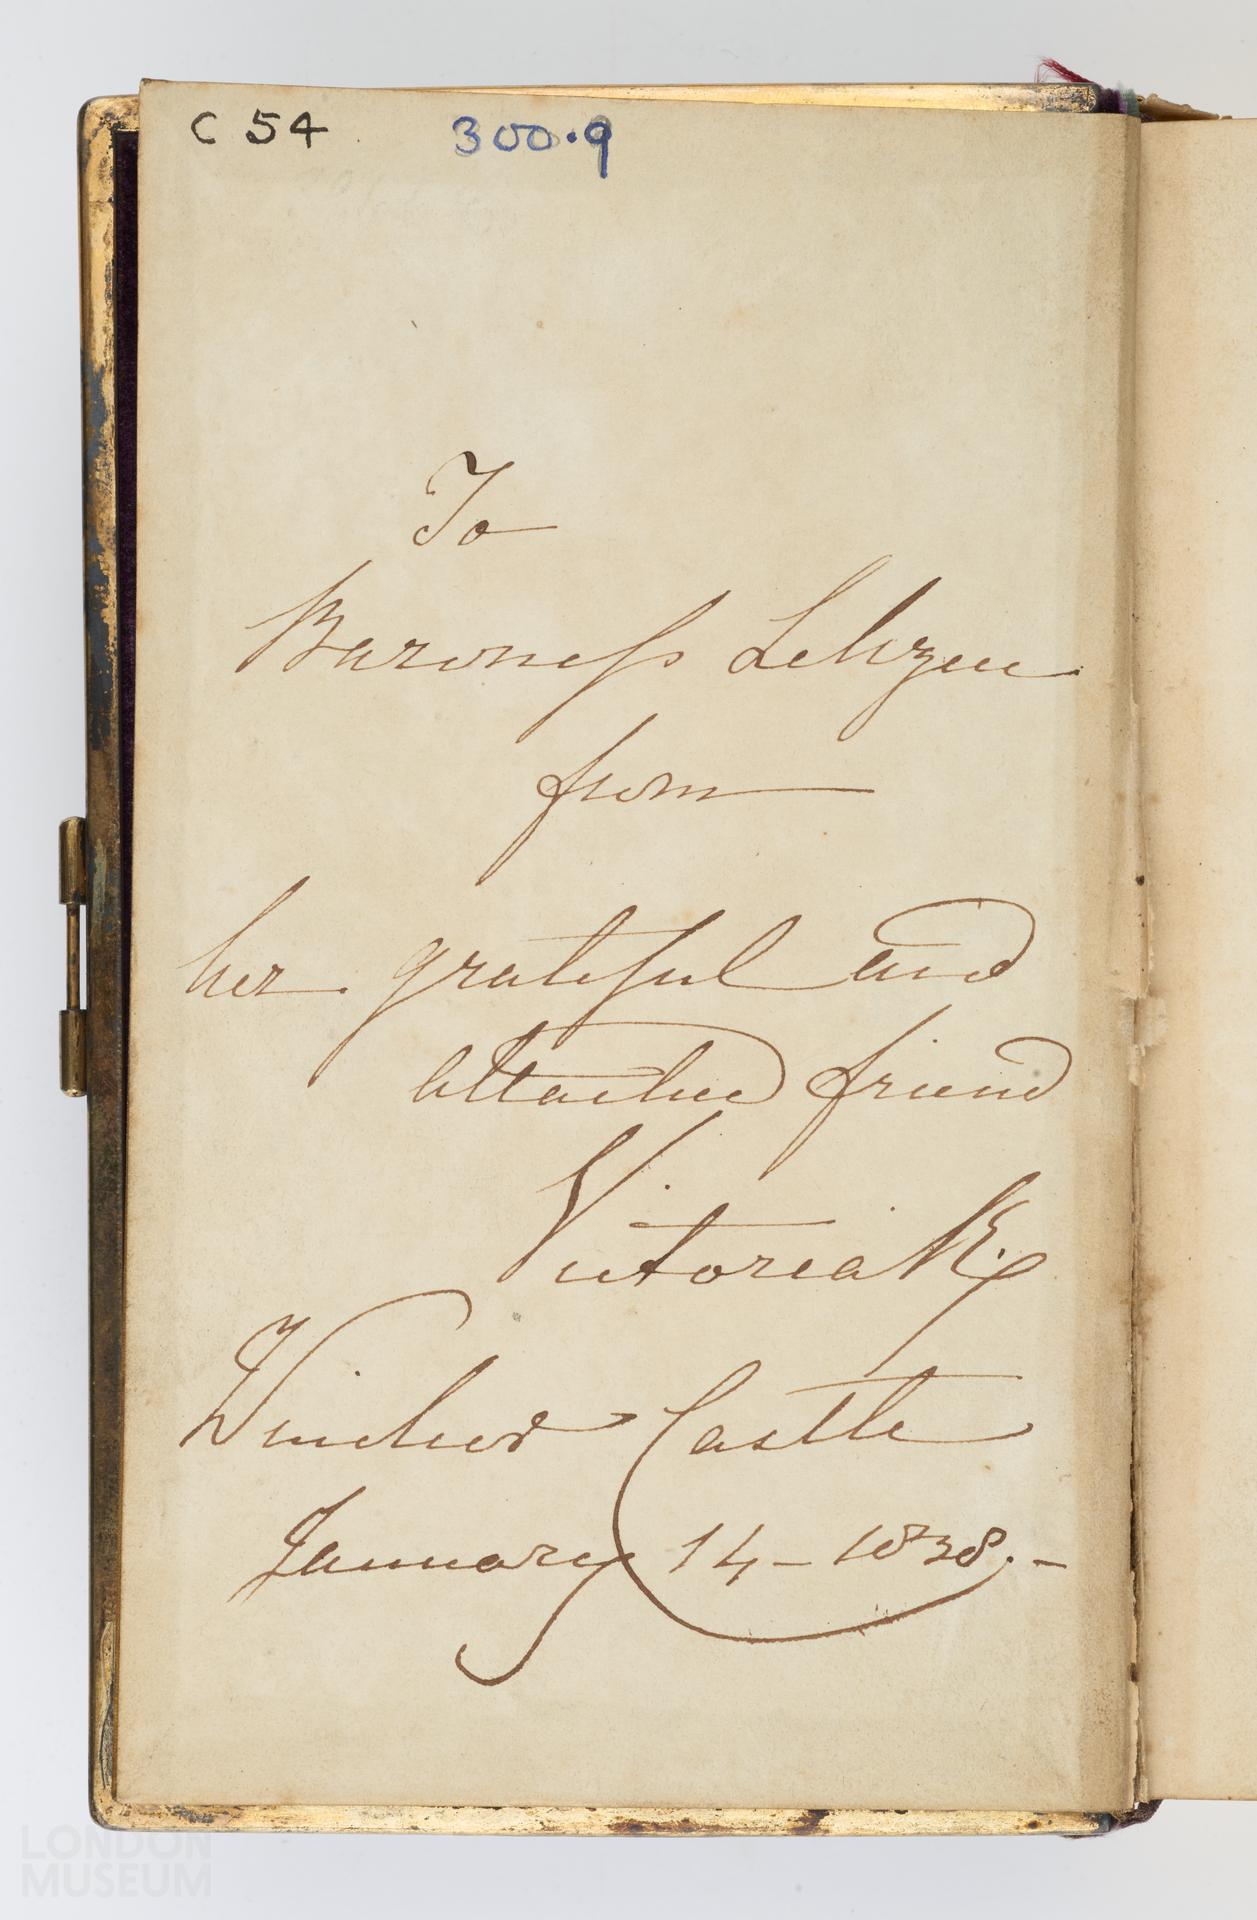 C 54 300.9
To
Baroness Lehzen
from
her grateful and
attached friend
Victoria R.
Windsor Castle
January 14 – 1838. –
LONDON
MUSEUM